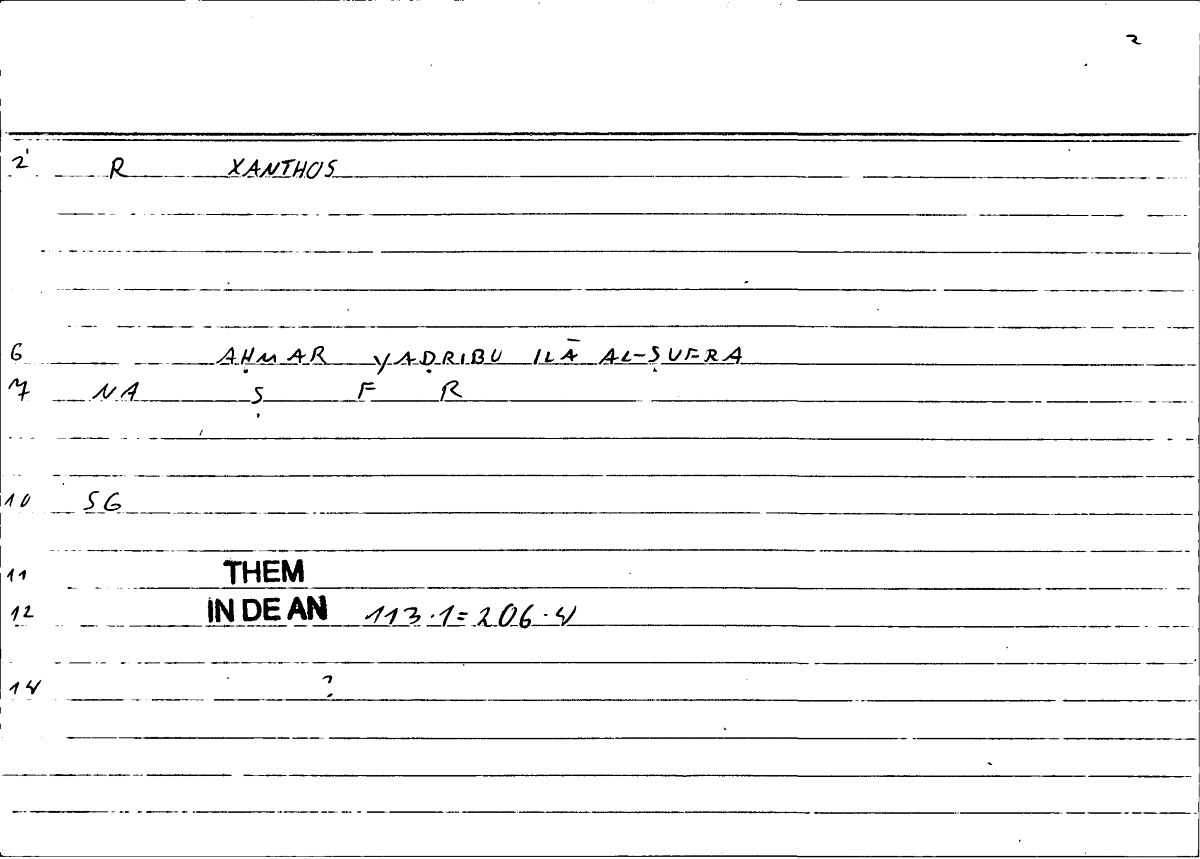 2
2' R XANTHOS
6 AḤMAR YAḌRIBU ILĀ AL-ṢUFRA
7 NA Ṣ F R
10 SG
11 THEM
12 IN DE AN 113.1=206.4
14 ?